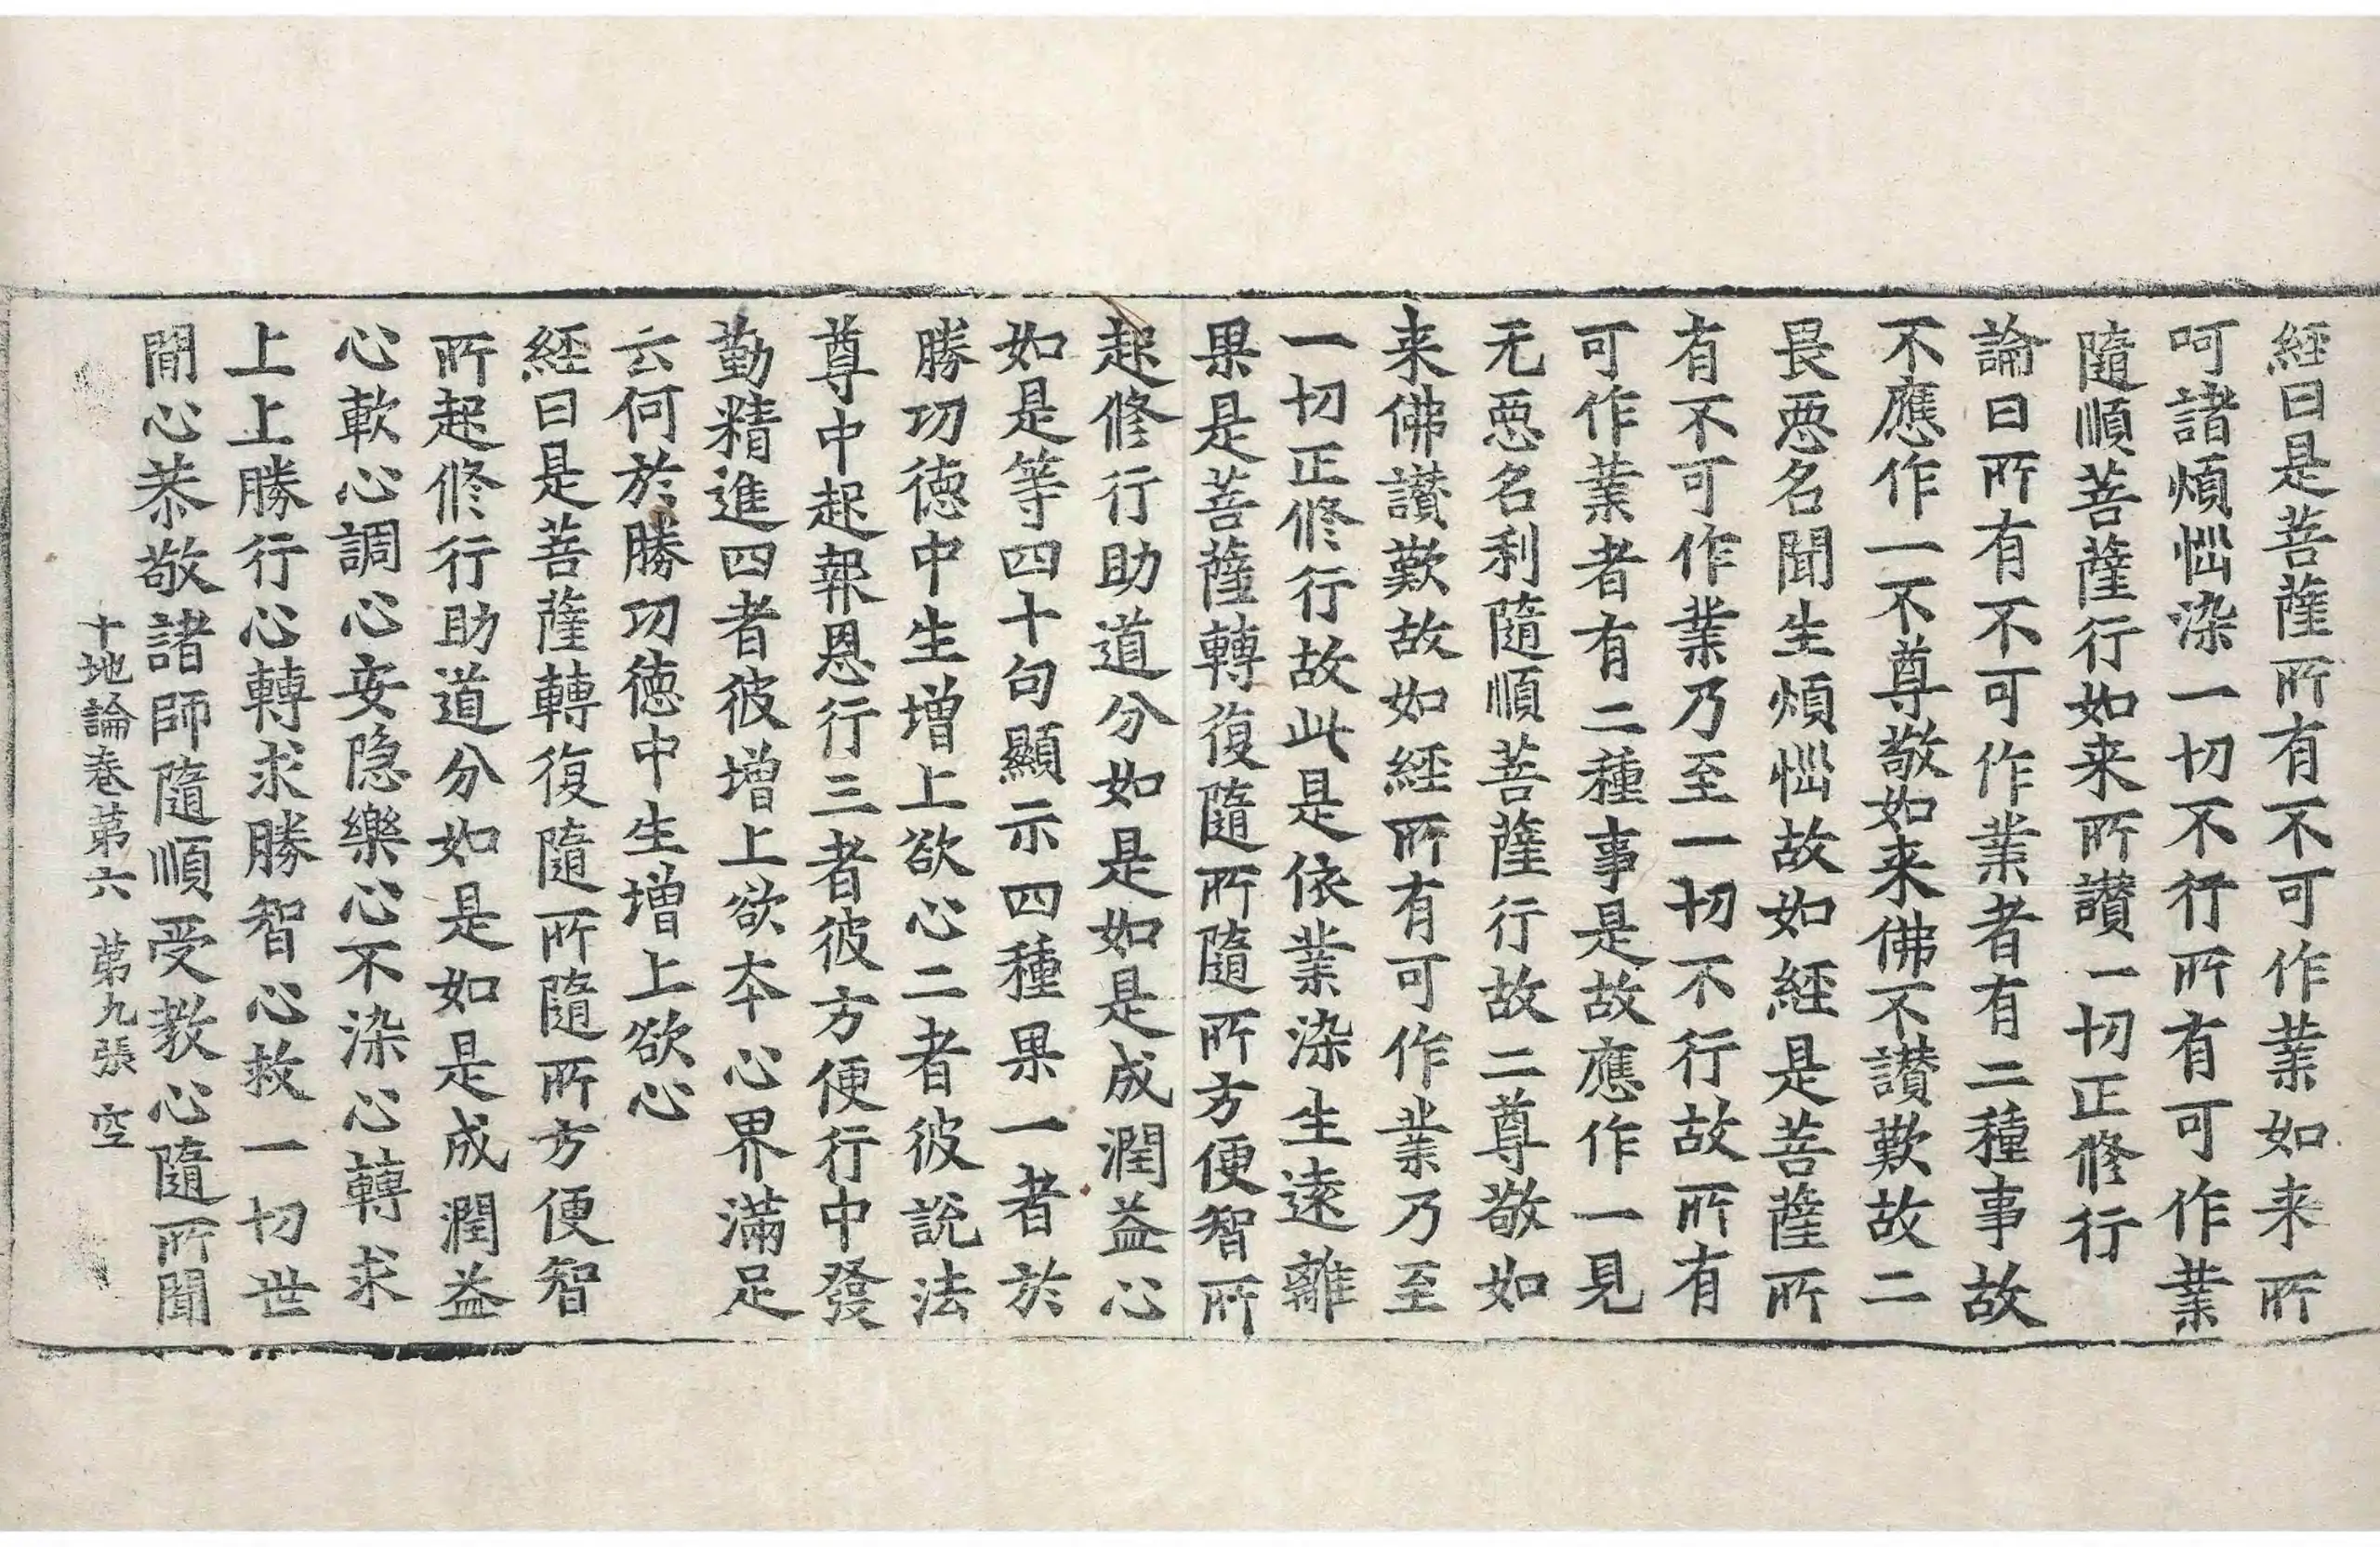 經曰是菩薩所有不可作業如来所
呵諸煩惱染一切不行所有可作業
隨順菩薩行如来所讃一切正修行
論曰所有不可作業者有二種事故
不應作一不尊敬如来佛不讃歎故二
畏惡名聞生煩惱故如經是菩薩所
有不可作業乃至一切不行故所有
可作業者有二種事是故應作一見
无惡名利隨順菩薩行故二尊敬如
来佛讃歎故如經所有可作業乃至
一切正修行故此是依業染生遠離
果是菩薩轉復隨所隨所方便智所
起修行助道分如是如是成潤益心
如是等四十句顯示四種果一者於
勝功徳中生增上欲心二者彼說法
尊中起報恩行三者彼方便行中發
勤精進四者彼增上欲夲心界滿足
云何於勝功徳中生增上欲心
經曰是菩薩轉復隨所隨所方便智
所起修行助道分如是如是成潤益
心軟心調心安隐樂心不染心轉求
上上勝行心轉求勝智心救一切世
間心恭敬諸師隨順受教心隨所聞
十地論卷苐六 苐九張 空